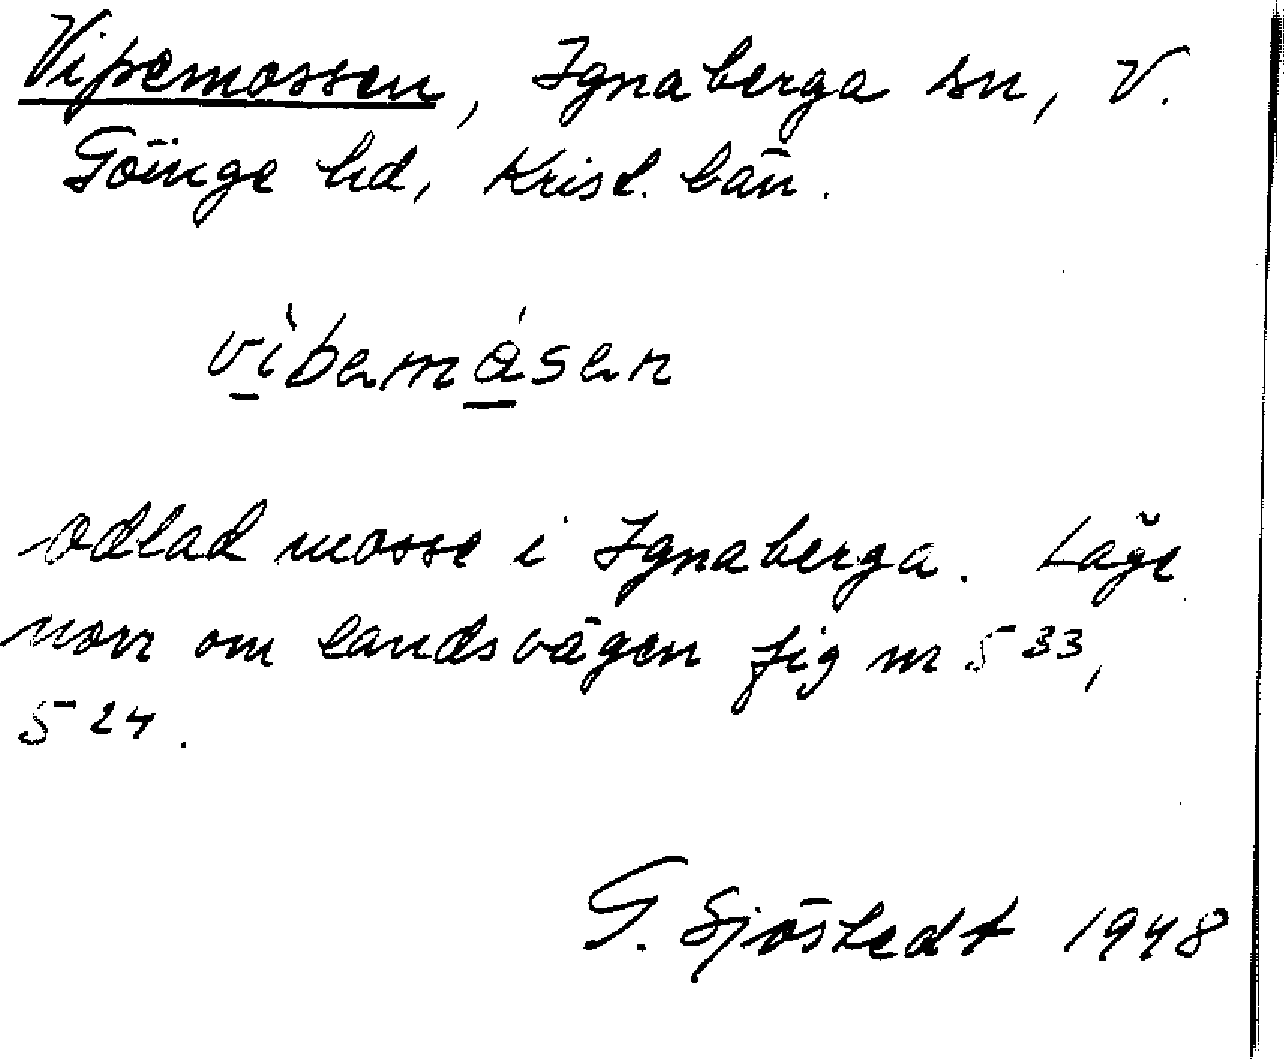 Vipemossen, Ignaberga sn, V.
Göinge hd, Krist. län.
vìbemásen
Odlad mosse i Ignaberga. Läge
norr om landsvägen fig nr 5 33,
5 24.
G. Sjöstedt 1948